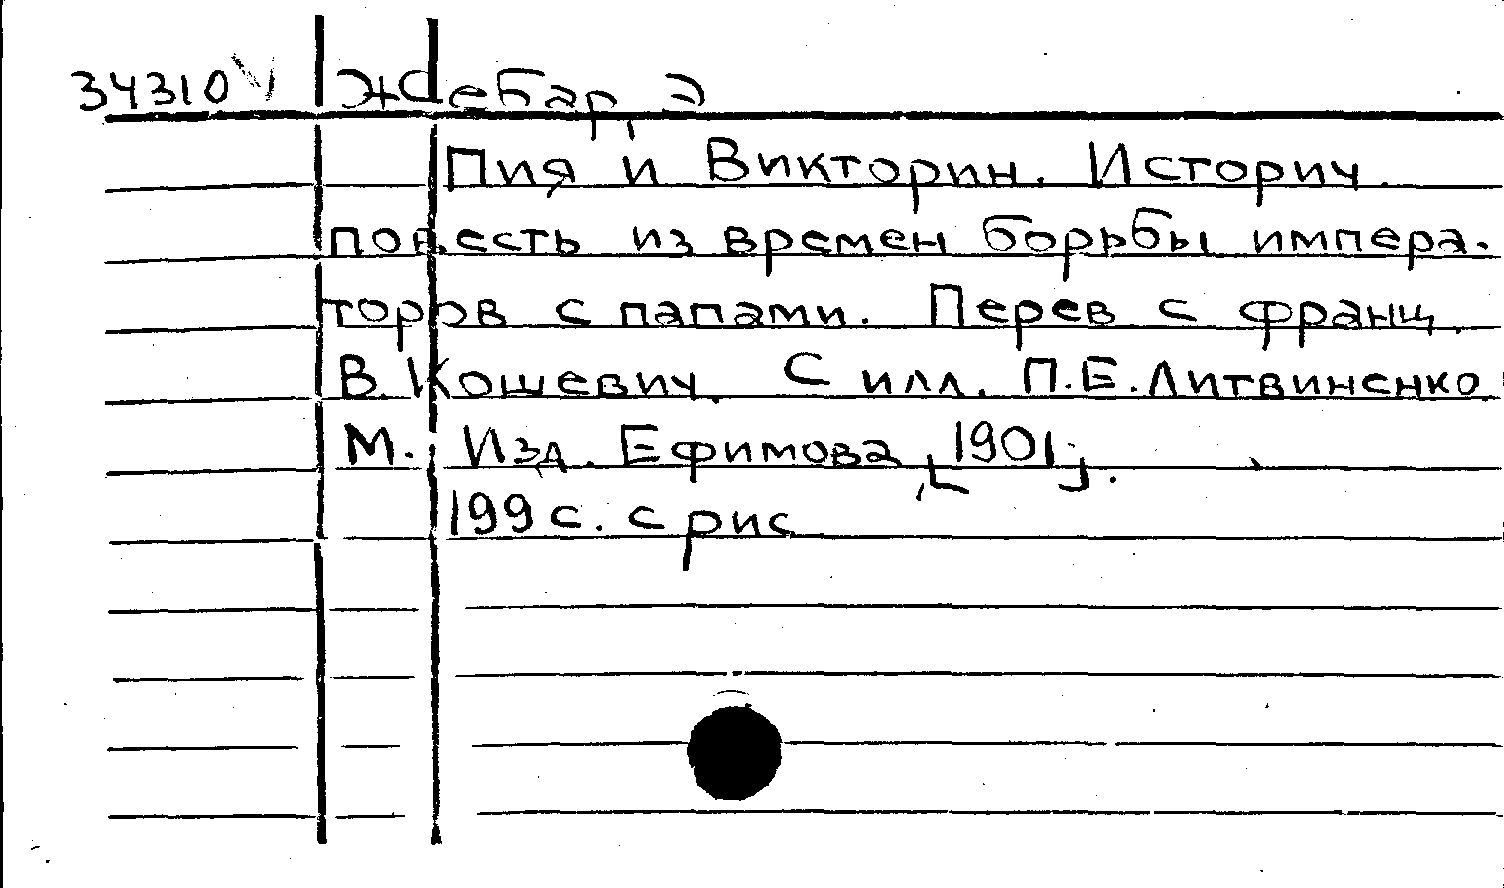 34310 V Жебар, Э
Пия и Викторин. Историч.
повесть из времен борьбы импера-
торов с папами. Перев с франц.
В. Кошевич. С илл. П.Е.Литвиненко.
М. Изд. Ефимова, [1901].
199 с. с рис